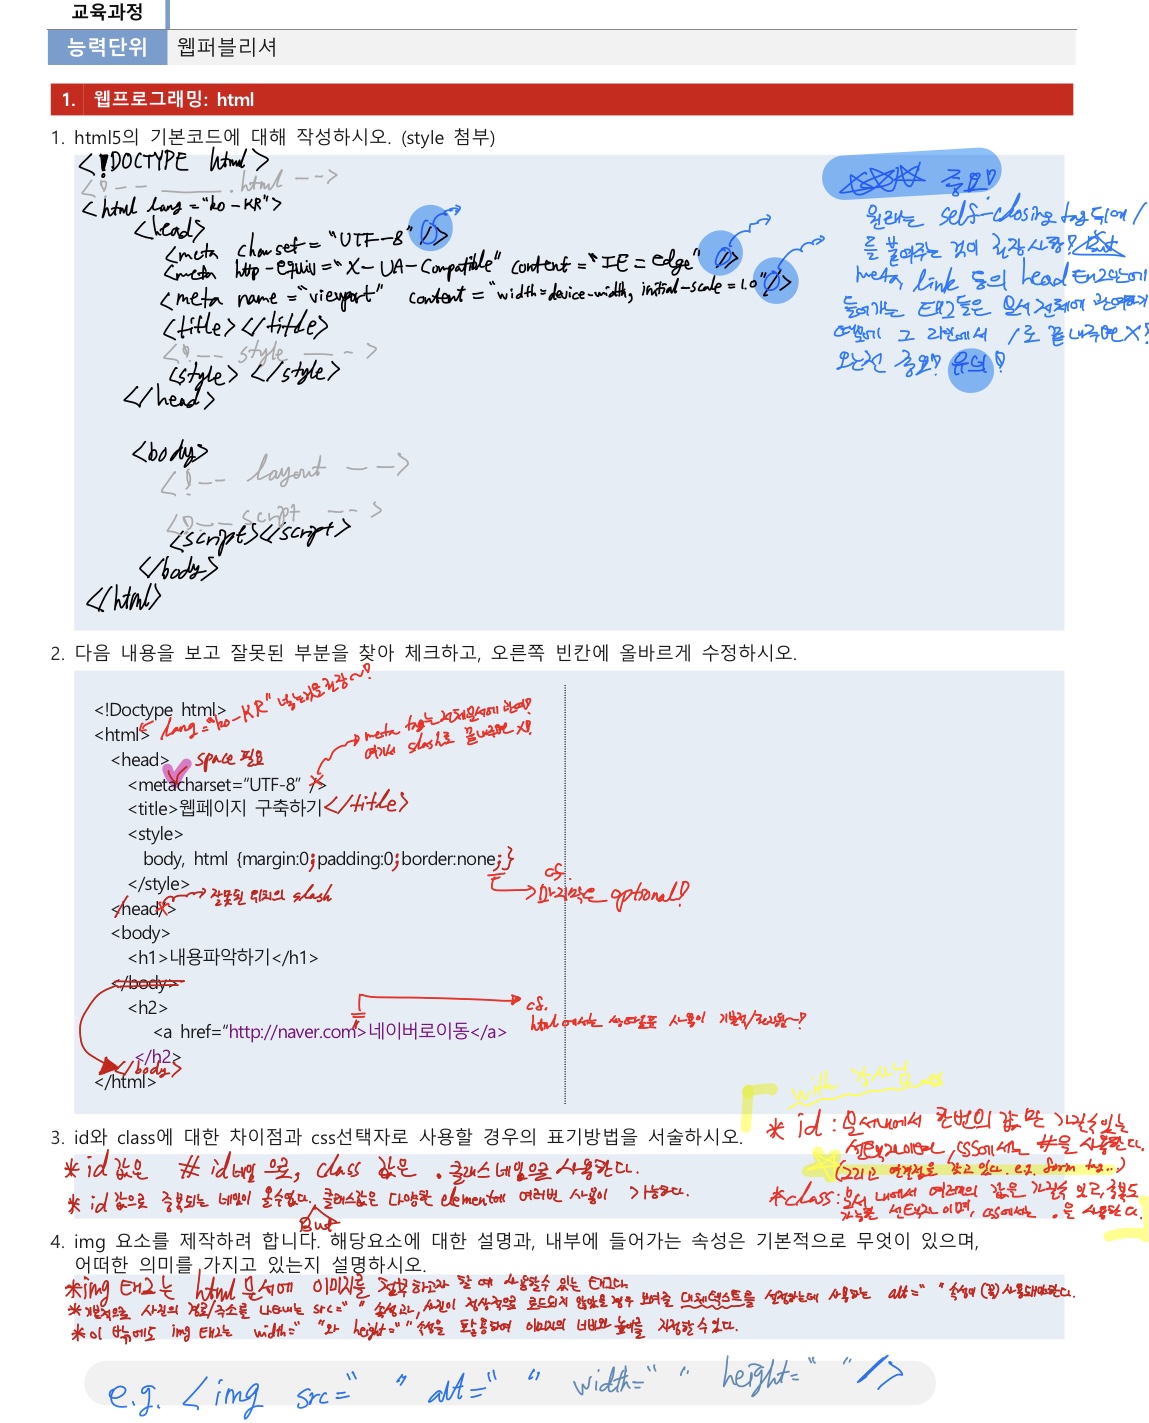 교육과정
능력단위 웹퍼블리셔
1. 웹프로그래밍: html
1. html5의 기본코드에 대해 작성하시오. (style 첨부)
<!DOCTYPE html>
<!-- ____.html -->
<html lang="ko-KR">
<head>
<meta charset="UTF-8" />
<meta http-equiv="X-UA-Compatible" content="IE=edge" />
<meta name="viewport" content="width=device-width, initial-scale=1.0" />
<title></title>
<!-- style -- -->
<style> </style>
</head>
<body>
<!-- layout -- -->
<!-- script -- -->
<script></script>
</body>
</html>
중요!
원래는 self-closing tag 뒤에 /
를 붙여주는 것이 권장사항! But
meta, link 등의 head 태그안에
들어가는 태그들은 문서 전체에 관여하기
때문에 그 라인에서 /로 끝내주면 X!
오는전 중요! 유의!
2. 다음 내용을 보고 잘못된 부분을 찾아 체크하고, 오른쪽 빈칸에 올바르게 수정하시오.
<!Doctype html>
<html> lang="ko-KR" 넣는것을 권장~!
<head>
space 필요
meta tag는 전체문서에 관여!
여기서 slash로 끝내주면 X!
<metacharset="UTF-8" />
<title>웹페이지 구축하기 </title>
<style>
body, html {margin:0;padding:0;border:none;}
cf.
마지막은 optional!
</style>
</head/> 잘못된 위치의 slash
<body>
<h1>내용파악하기</h1>
</body>
<h2>
cf.
html에서는 쌍따옴표 사용이 기본적/권장됨~!
<a href="http://naver.com">네이버로이동</a>
</h2>
</body>
</html>
with 강사님
3. id와 class에 대한 차이점과 css선택자로 사용할 경우의 표기방법을 서술하시오.
* id 값은 # id네임 으로, class 값은 . 클래스네임으로 사용한다.
* id 값으로 중복되는 네임이 올수없다. But 클래스값은 다양한 element에 여러번 사용이 가능하다.
* id : 문서내에서 한번의 값만 가질수있는
선택자이며, CSS에서는 #을 사용한다.
(그리고 연결점을 갖고 있다. e.g. form tag...)
* class : 문서 내에서 여러개의 값은 가질수 있고, 중복도
가능한 선택자 이며, css에서는 .을 사용한다.
4. img 요소를 제작하려 합니다. 해당요소에 대한 설명과, 내부에 들어가는 속성은 기본적으로 무엇이 있으며,
어떠한 의미를 가지고 있는지 설명하시오.
* img 태그는 html 문서에 이미지를 첨부하고자 할 때 사용할수 있는 태그다.
* 기본적으로 사진의 경로/주소를 나타내는 src=" " 속성과, 사진이 정상적으로 로드되지 않았을 경우 보여줄 대체텍스트를 설정하는데 사용하는 alt=" " 속성이 (꼭) 사용돼야한다.
* 이 밖에도 img 태그는 width=" "와 height=" " 속성을 활용하여 이미지의 너비와 높이를 지정할 수 있다.
e.g. <img src=" " alt=" " width=" " height=" " />